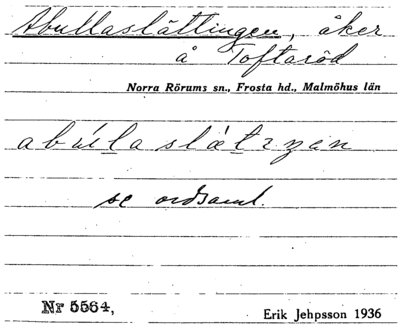 Abullaslättingen, åker
å Toftaröd
Norra Rörums sn., Frosta hd., Malmöhus län
se ordsaml.
Nr 5564,
Erik Jehpsson 1936